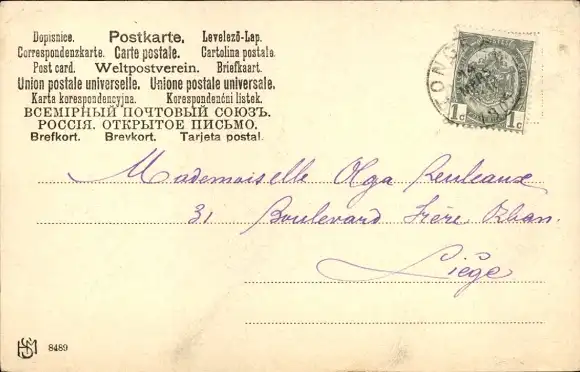 Dopisnice. Postkarte. Levelező-Lap.
Correspondenzkarte. Carte postale. Cartolina postale.
Post card. Weltpostverein. Briefkaart.
Union postale universelle. Unione postale universale.
Karta korespondencyjna. Korespondenční listek.
ВСЕМІРНЫЙ ПОЧТОВЫЙ СОЮЗЪ.
РОССІЯ. ОТКРЫТОЕ ПИСЬМО.
Brefkort. Brevkort. Tarjeta postal.
TONG
1c 1c
Mademoiselle Olga Reuleaux
31 Boulevard Frère Orban.
Liége
HSM 8489